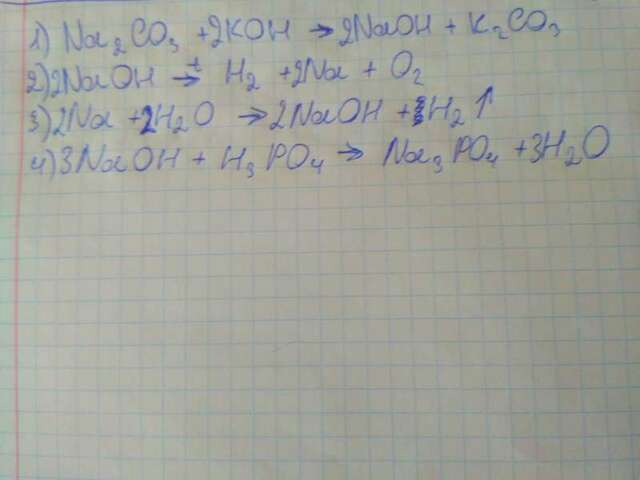 1) Na₂CO₃ + 2KOH → 2NaOH + K₂CO₃
2) 2NaOH →ᵗ H₂ + 2Na + O₂
3) 2Na + 2H₂O → 2NaOH + H₂↑
4) 3NaOH + H₃PO₄ → Na₃PO₄ + 3H₂O